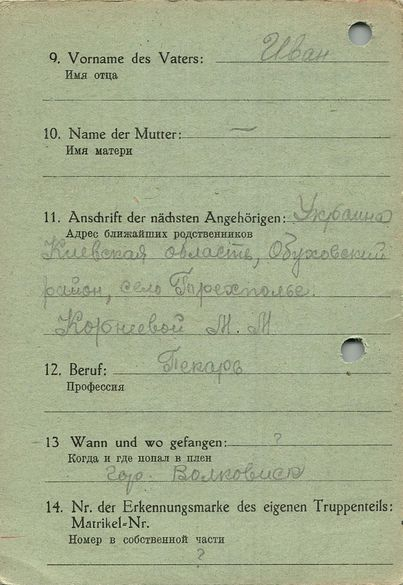 9. Vorname des Vaters: Иван
Имя отца
10. Name der Mutter: —
Имя матери
11. Anschrift der nächsten Angehörigen: Украина
Адрес ближайших родственников
Киевская область, Обуховский
район, село Трехполье.
Корнеевой М. М.
12. Beruf: Пекарь
Профессия
13 Wann und wo gefangen: ?
Когда и где попал в плен
гор. Волковиск
14. Nr. der Erkennungsmarke des eigenen Truppenteils:
Matrikel-Nr.
Номер в собственной части
?